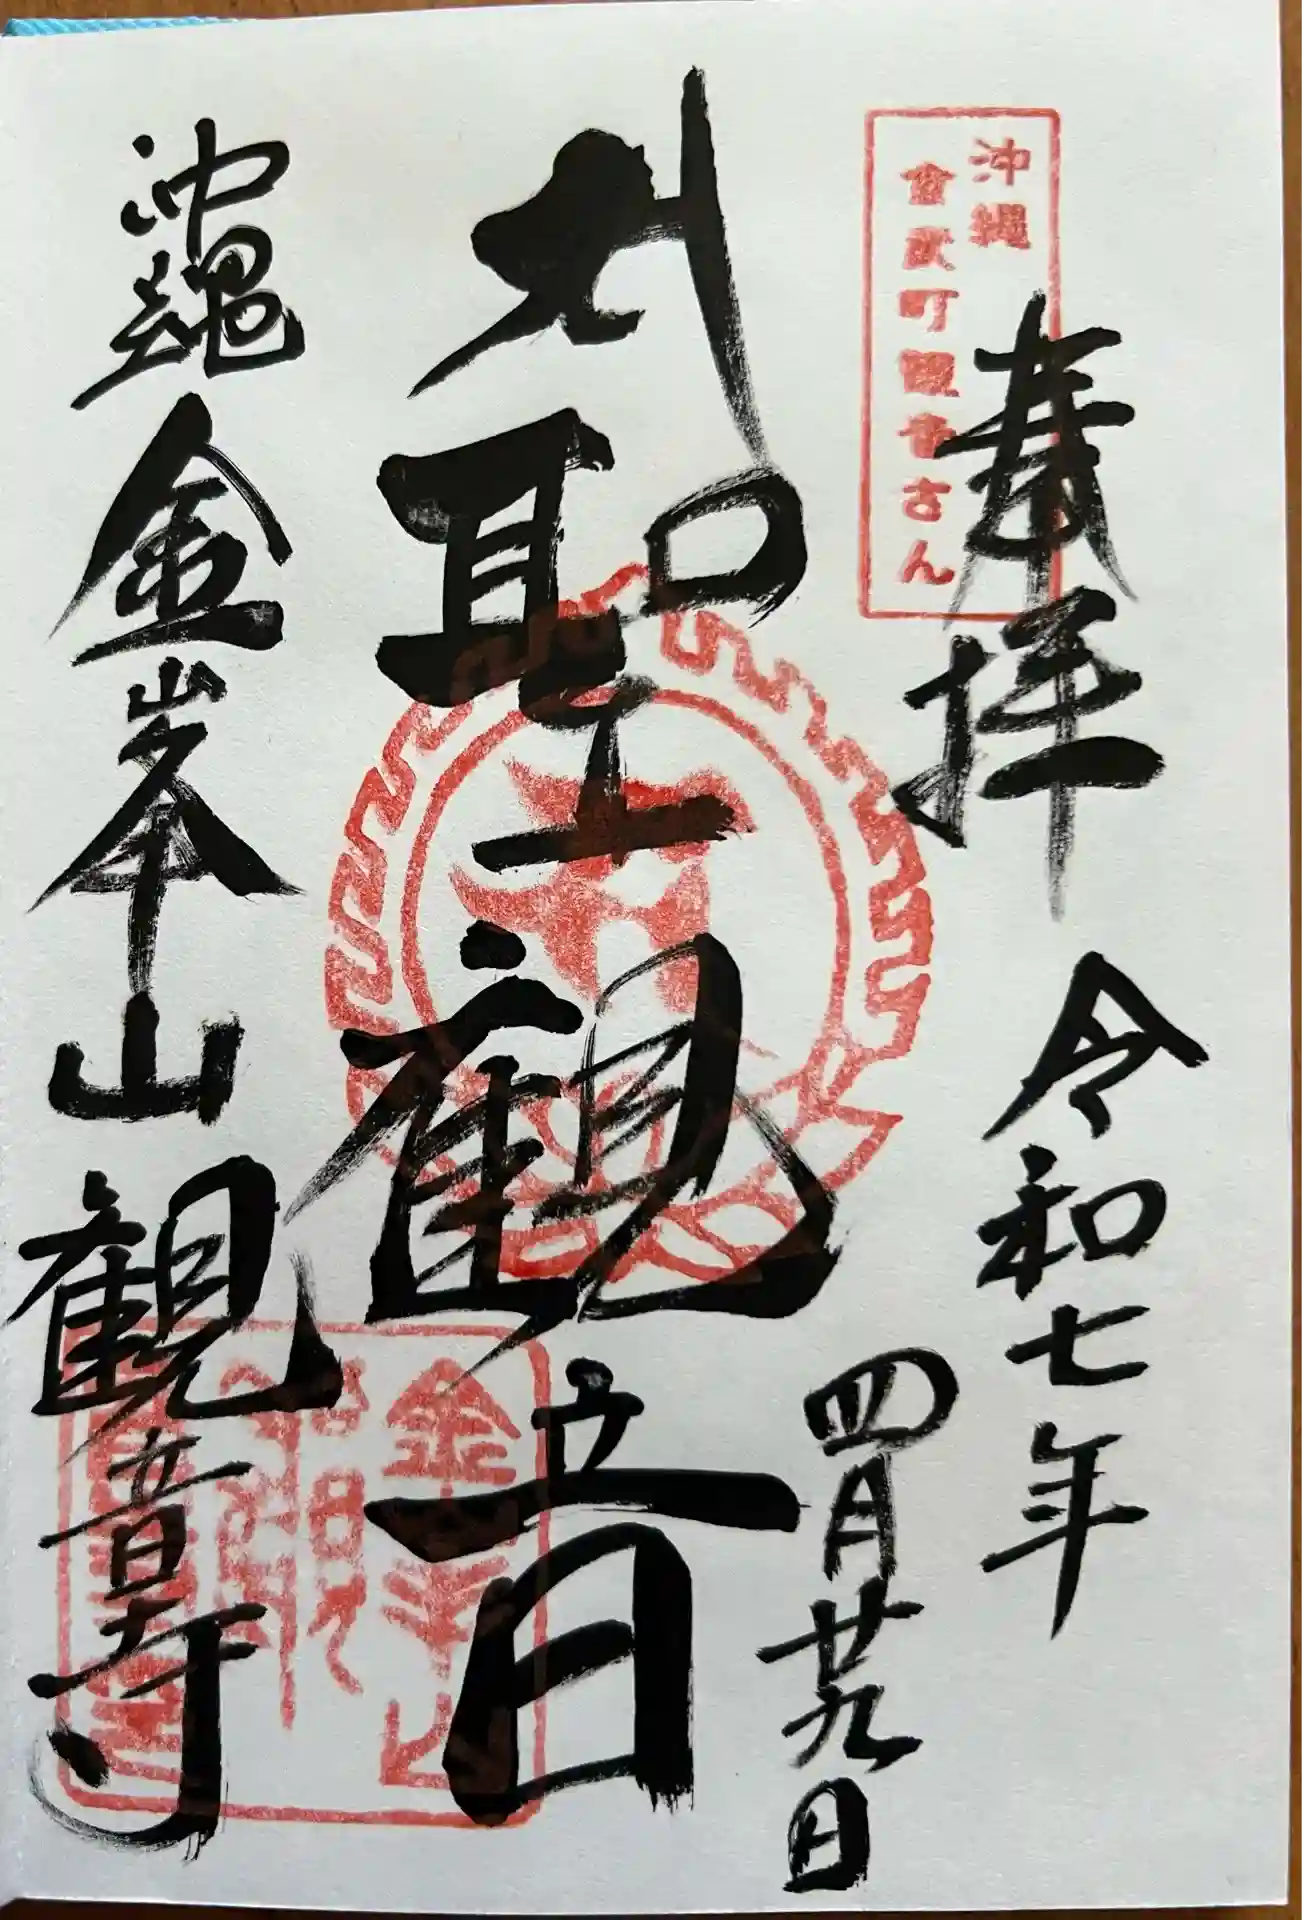 沖縄
金武町観音さん
奉拝
令和七年
四月廿九日
聖観音
沖縄 金峯山 観音寺
金峯山